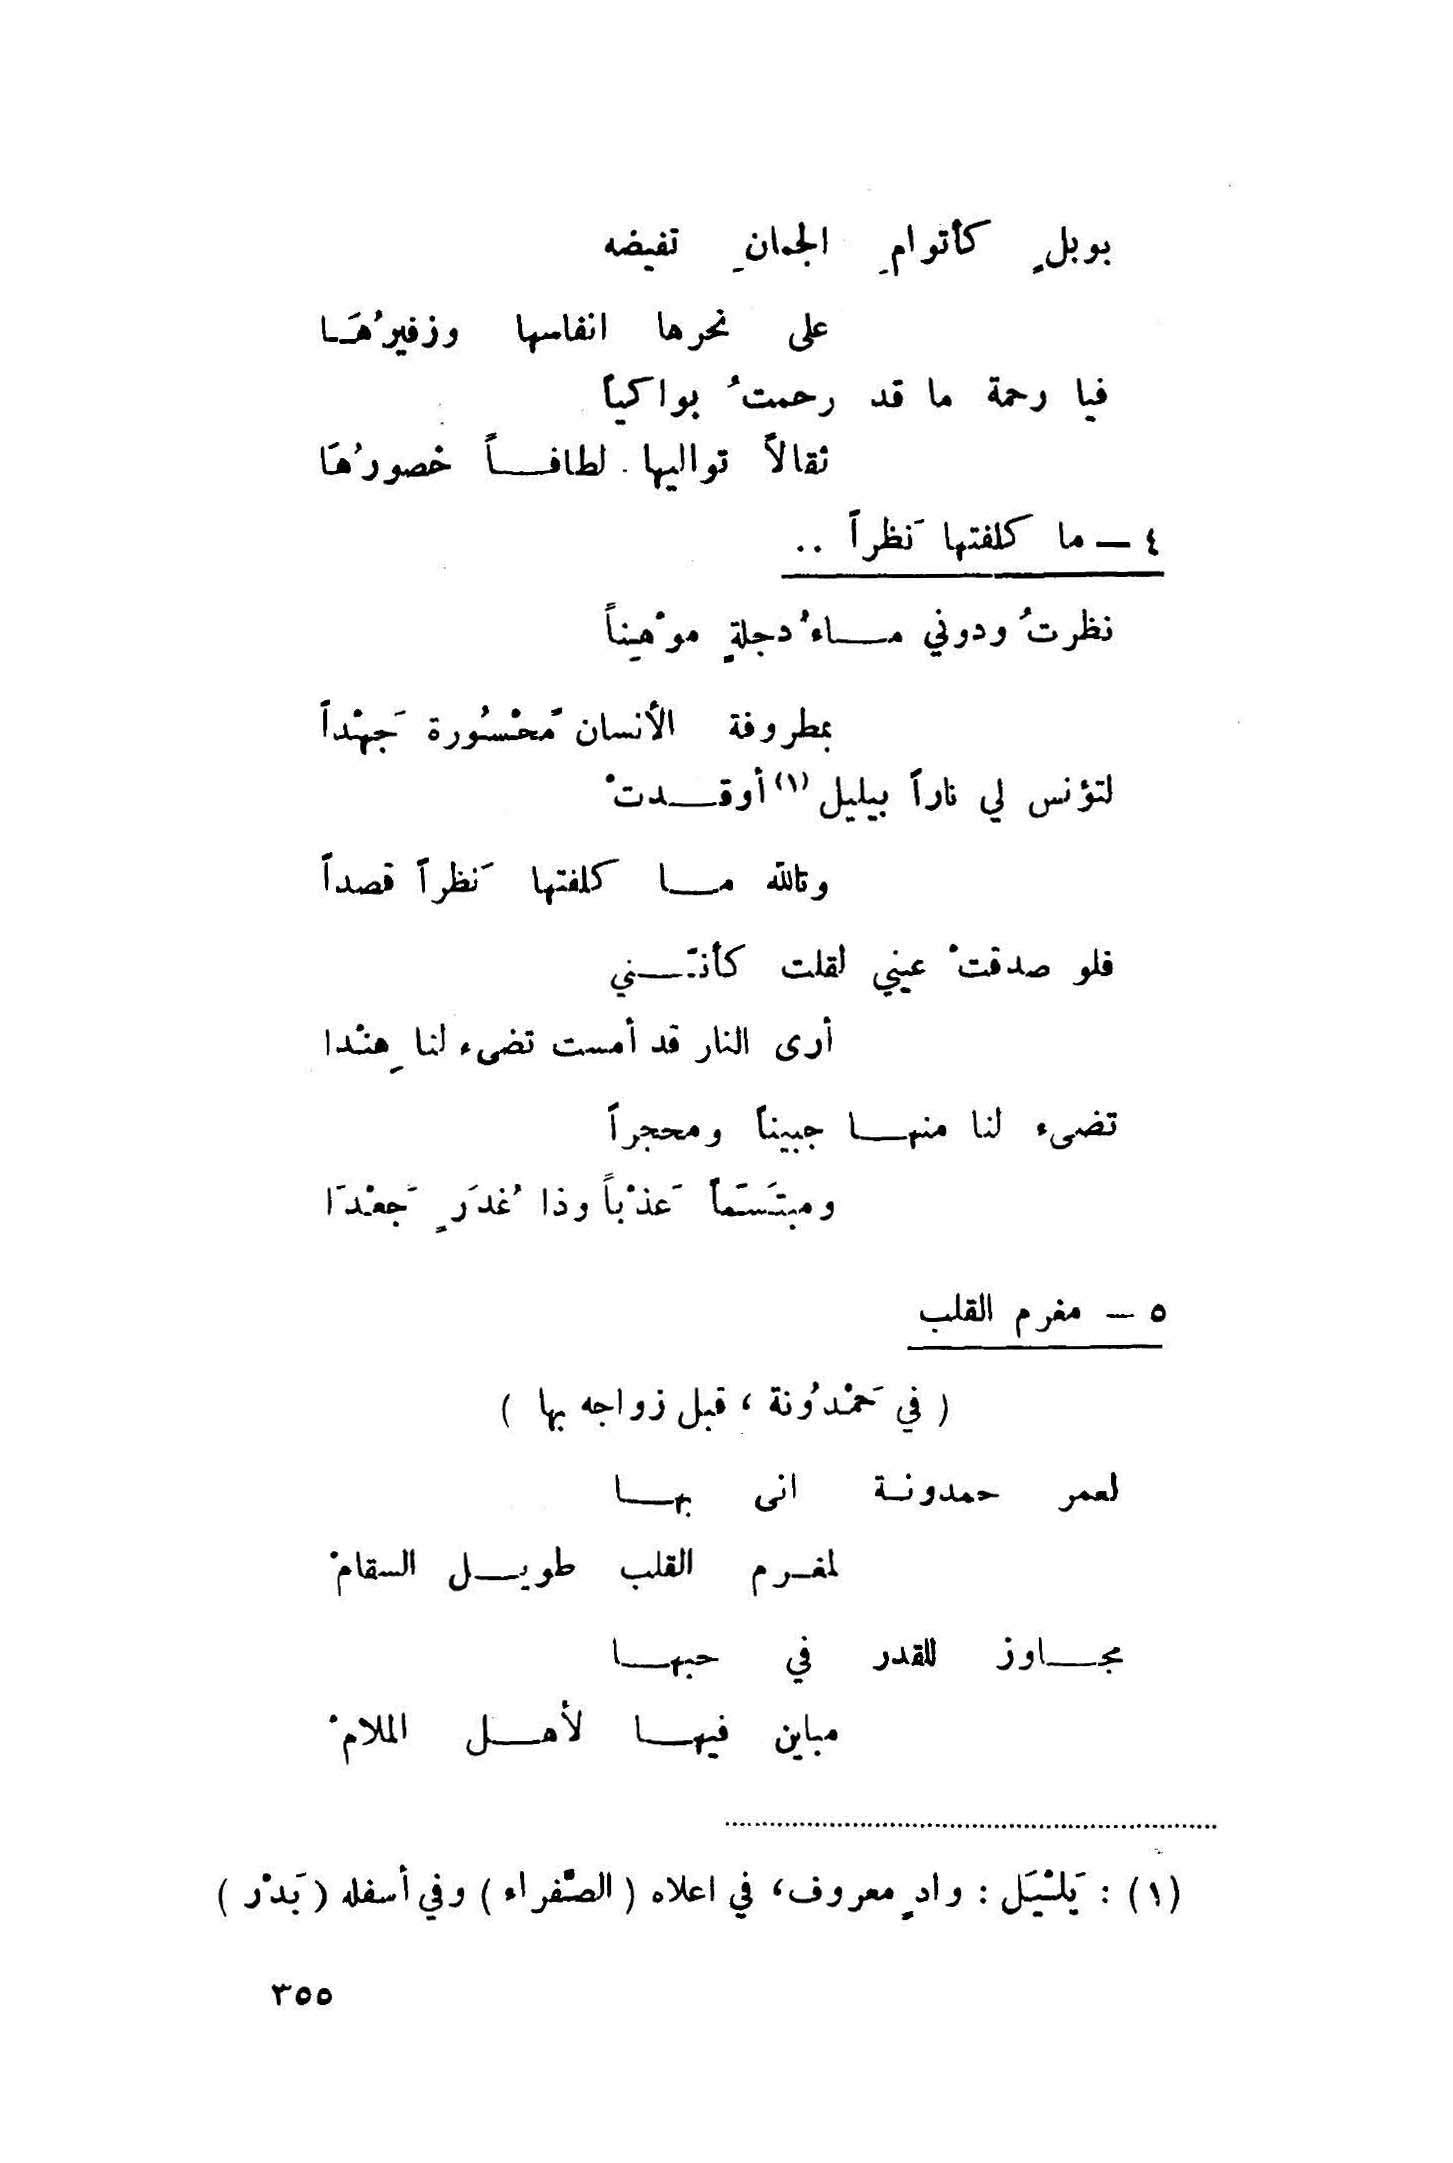 بوبلٍ كأتوامِ الجمانِ تفيضه
على نحرها انفاسها وزفيرُهَـا
فيا رحمة ما قد رحمتُ بواكياً
ثقالاً تواليها لطافــاً خصورُهَا
٤ – ما كلفتها نَظراً ..
نظرتُ ودوني مــاءُ دجلةٍ موْهِناً
بمطروفة الأنسان مَحْسُورة جَهْداً
لتؤنس لي ناراً بيليل (١) أوقــدتْ
وتالله مــا كلفتها نَظراً قصداً
فلو صدقتْ عيني لقلت كأنّــني
أرى النار قد أمست تضىء لنا هِنْدا
تضىء لنا منهــا جبيناً ومحجراً
ومبتَسَماً عَذْباً وذا غُدَرٍ جَعْدَا
٥ – مغرم القلب
( في حَمْدُونة ، قبل زواجه بها )
لعمر حمدونـة انى بهــا
لمغـرم القلب طويــل السقامْ
مجــاوز للقدر في حبهــا
مباين فيهــا لأهــل الملامْ
(١) : يَلْيَل : وادٍ معروف، في اعلاه ( الصّفراء ) وفي أسفله ( بَدْر )
٣٥٥